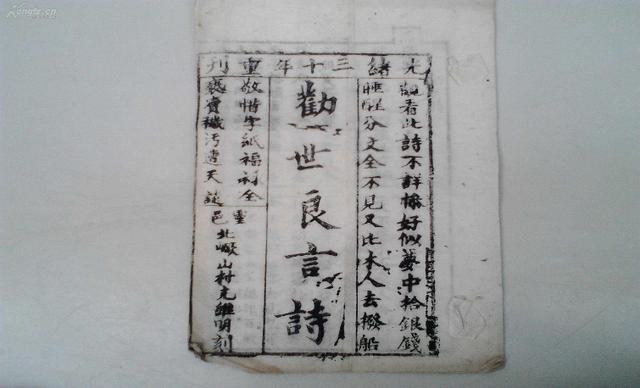 Kongfz.cn
光緒三十年重刊
看此詩不詳好似夢中拾銀錢
睡醒分文全不見又比木人去撥船
勸世良言詩
敬惜字紙福祿全
褻穢污遭天
靈邑
北山村維明刻